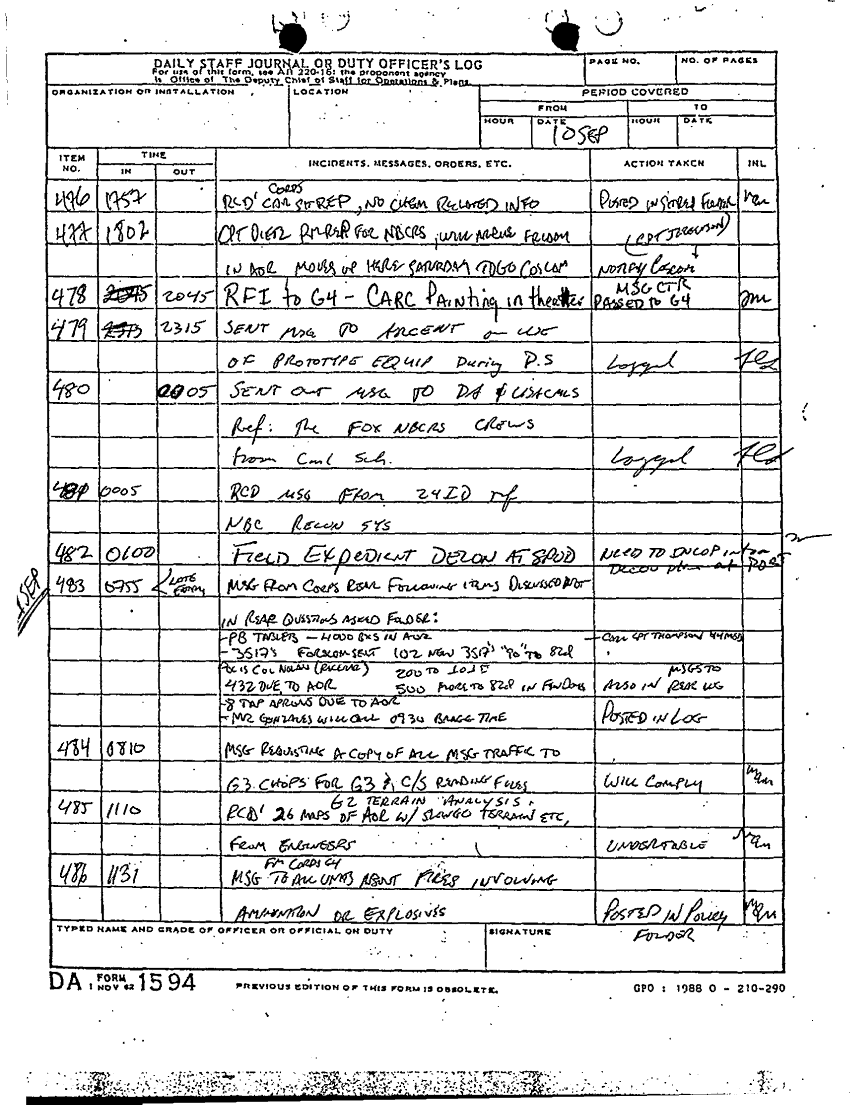 DAILY STAFF JOURNAL OR DUTY OFFICER'S LOG
For use of this form, see AR 220-15; the proponent agency
is Office of The Deputy Chief of Staff for Operations & Plans.
PAGE NO.
NO. OF PAGES
ORGANIZATION OR INSTALLATION
LOCATION
PERIOD COVERED
FROM
TO
HOUR
DATE
HOUR
DATE
10 SEP
ITEM NO.
TIME
IN
OUT
INCIDENTS, MESSAGES, ORDERS, ETC.
ACTION TAKEN
INL
476 1757 RCD' CORPS CAR SITREP, NO CHEM RELATED INFO POSTED IN SITREP FOLDER
477 1802 CPT DIETZ FOR NBCRS, WILL ARRIVE FRIDAY (CPT JORGENSON)
IN AOR MOVES UP HERE SATURDAY TO GO COSCOM NOTIFY COSCOM
478 2045 RFI to G4 - CARC PAINTING in theater MSG CTR PASSED TO G4
479 2315 SENT MSG TO ARCENT on USE
OF PROTOTYPE EQUIP During D.S Logged
480 0005 SENT OUT MSG TO DA & USACMLS
Ref: The FOX NBCRS CREWS
from Cml Sch. Logged
481 0005 RCD MSG From 24 ID ref
NBC RECON SYS
482 0600 FIELD EXPEDIENT DECON AT SPOD NEED TO INCOP into
Decon plan at PORT
SEP
483 0755 LATE ENTRY MSG FROM CORPS REAR FOLLOWING ITEMS DISCUSSED
IN REAR QUESTIONS ASKED FOLDER:
-PB TABLETS - 4000 BXS IN AOR - CALL CPT THOMPSON 44 MED
- 3517's FORSCOM SENT 102 NEW 3517's "90" TO 82d
POC IS COL NOLAN 200 TO 101
432 DUE TO AOR 500 MORE TO 82d IN FEW DAYS ALSO IN MSGS TO REAR
-8 TAP APRONS DUE TO AOR
- MR GONZALES WILL CALL 0930 BRAGG TIME POSTED IN LOG
484 0810 MSG REQUESTING A COPY OF ALL MSG TRAFFIC TO
G3 CHOPS FOR G3 & C/S READING FILES WILL COMPLY
485 1110 RCD' 26 MAPS OF AOR G2 TERRAIN ANALYSIS W/ TERRAIN ETC,
FROM ENGINEERS
486 1131 MSG FM CORPS G4 TO ALL UNITS FIRES INVOLVING
AMMUNITION OR EXPLOSIVES POSTED IN POLICY
FOLDER
TYPED NAME AND GRADE OF OFFICER OR OFFICIAL ON DUTY
SIGNATURE
DA FORM 1 NOV 62 1594
PREVIOUS EDITION OF THIS FORM IS OBSOLETE.
GPO : 1988 O - 210-290